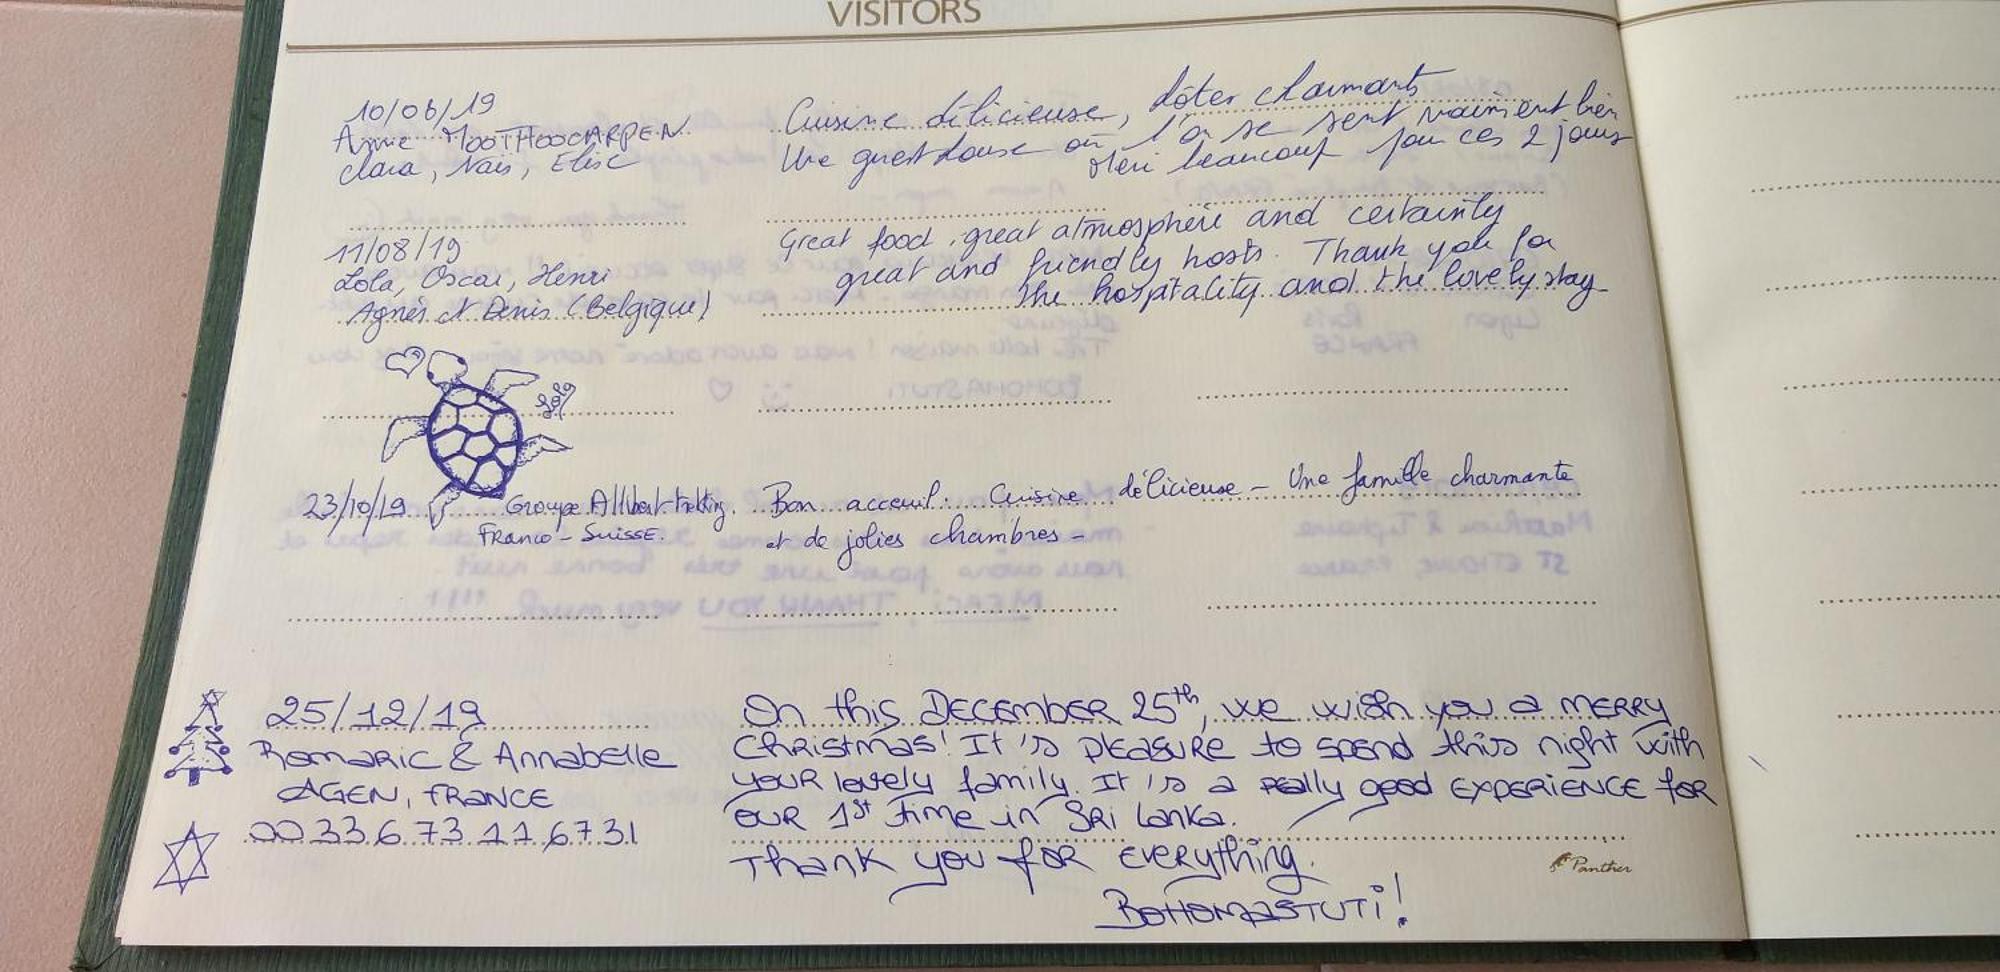 VISITORS
10/08/19
Annie MOOTHOOCARPEN
Clara, Naïs, Elise
Cuisine délicieuse, hôtes charmants
Une guesthouse où l'on se sent vraiment bien
Merci beaucoup pour ces 2 jours
11/08/19
Lola, Oscar, Henri
Agnès et Denis (Belgique)
Great food, great atmosphere and certainly
great and friendly hosts. Thank you for
the hospitality and the lovely stay
Lola
23/10/19
Groupe Allibert-trekking.
Franco-Suisse.
Bon acceuil. Cuisine délicieuse - Une famille charmante
et de jolies chambres -
25/12/19
Romaric & Annabelle
AGEN, FRANCE
00 33 6 73 11 67 31
On this DECEMBER 25th, we wish you a MERRY
Christmas! It's pleasure to spend this night with
your lovely family. It's a really good experience for
our 1st time in Sri Lanka.
Thank you for everything.
BOHOMASTUTI!
Panther